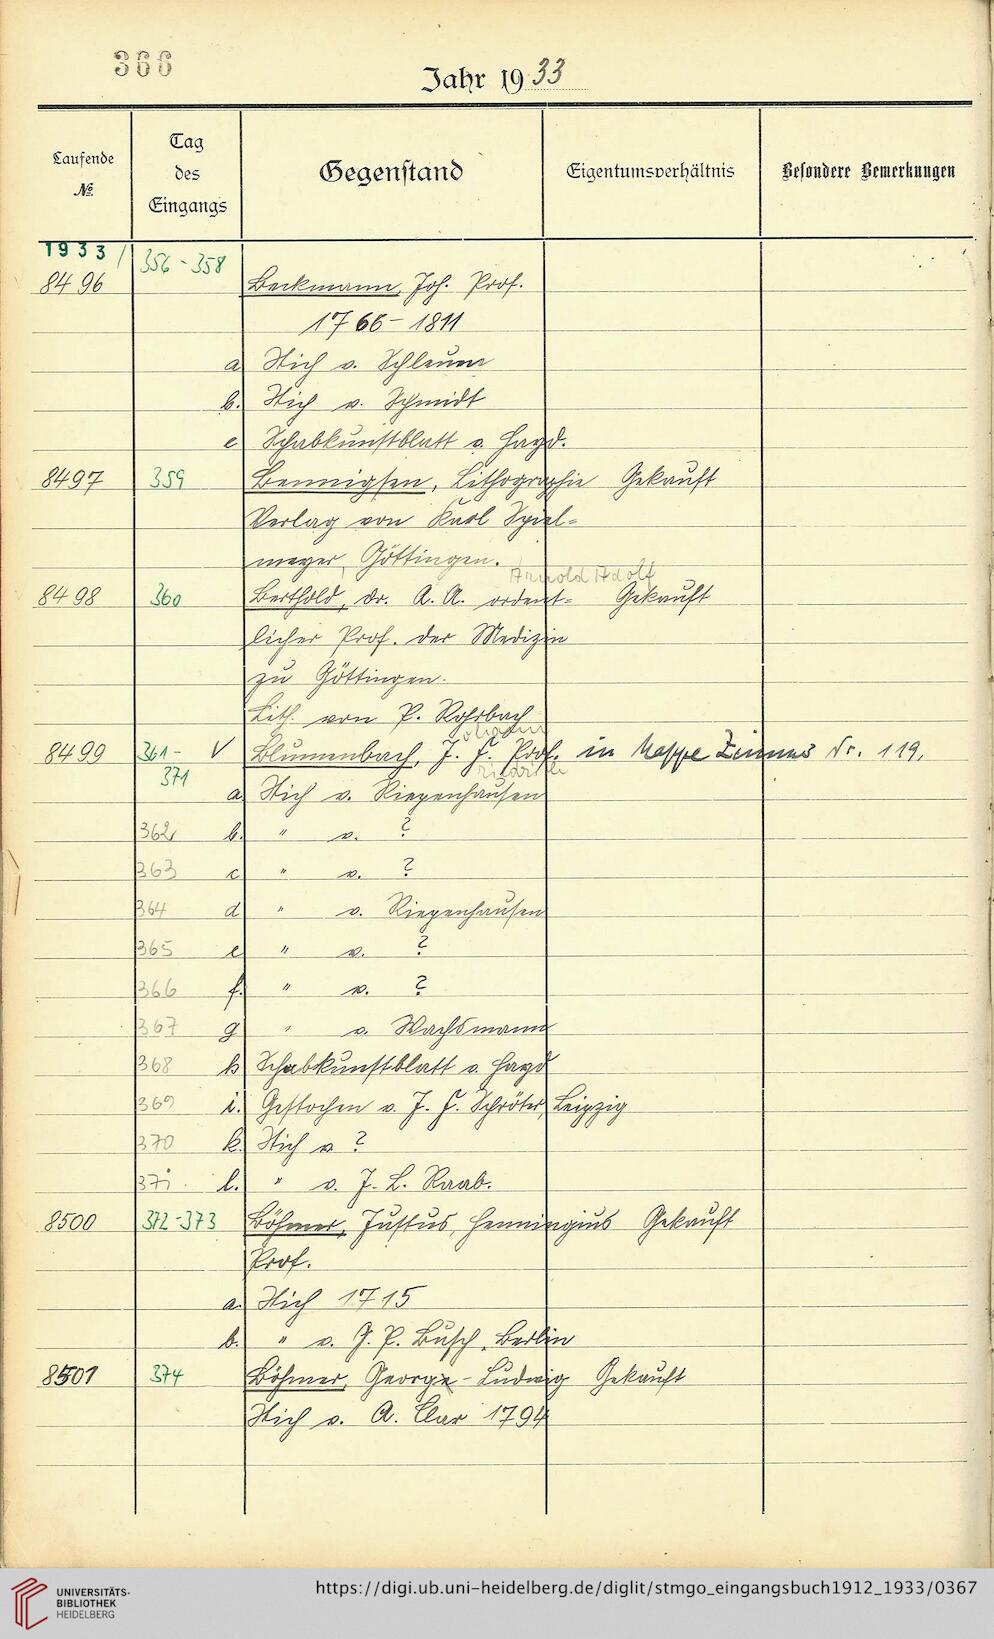 366
Jahr 1933
Laufende
№
Tag
des
Eingangs
Gegenstand
Eigentumsverhältnis
Besondere Bemerkungen
1933/
8496 356-358 Beckmann, Joh. Prof.
1766-1811
a Stich v. Schleuen
b. Stich v. Schmidt
c Schabkunstblatt v. Hayd.
8497 359 Bennigsen, Lithographie Gekauft
Verlag von Karl Spiel-
meyer, Göttingen.
Arnold Adolf
8498 360 Berthold, Dr. A. A. ordent- Gekauft
licher Prof. der Medizin
zu Göttingen.
Lith. von P. Rohrbach
8499 361- V Blumenbach, J. F. Prof. in Mappe Zimmer Nr. 119.
371
a. Stich v. Riepenhausen
362 b. " v. ?
363 c " v. ?
364 d " v. Riepenhausen
365 e " v. ?
366 f. " v. ?
367 g " v. Wachsmann
368 h Schabkunstblatt v. Hayd
369 i. Gestochen v. J. F. Schröter, Leipzig
370 k. Stich v ?
371. l. " v. J. L. Raab.
8500 372-373 Böhmer, Justus, Henningius Gekauft
Prof.
a. Stich 1715
b. " v. G. P. Busch, Berlin
8501 374 Böhmer, George-Ludwig Gekauft
Stich v. A. Clar 1794
UNIVERSITÄTS-
BIBLIOTHEK
HEIDELBERG
https://digi.ub.uni-heidelberg.de/diglit/stmgo_eingangsbuch1912_1933/0367